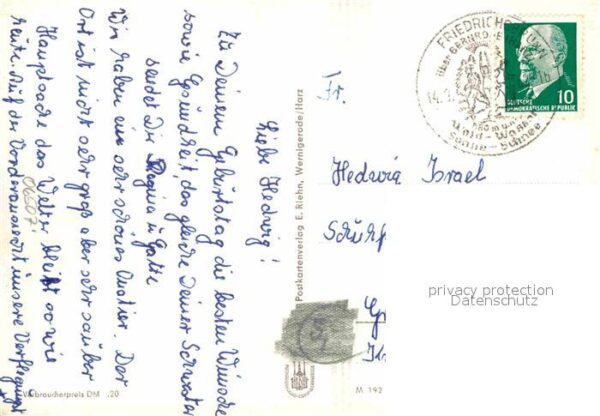 Liebe Hedwig!
Zu Deinem Geburtstag die besten Wünsche
sowie Gesundheit, das gleiche Deiner Schwester
sendet Dir Regina u. Gatte
Wir haben ein sehr schönes Quatier. Der
Ort ist nicht sehr groß aber sehr sauber
Hauptsache das Wetter bleibt so wie
heute. Auf der Vorderansicht unsere Verpflegungs
06507
Verbraucherpreis DM .20
Postkartenverlag E. Riehn, Wernigerode/Harz
M 192
FRIEDRICHSBRUNN
über GERNRODE
14.
580 m ü.
Wald - Wasser
Sonne - Schnee
DEUTSCHE
DEMOKRATISCHE REPUBLIK
10
Fr.
Hedwig Israel
privacy protection
Datenschutz